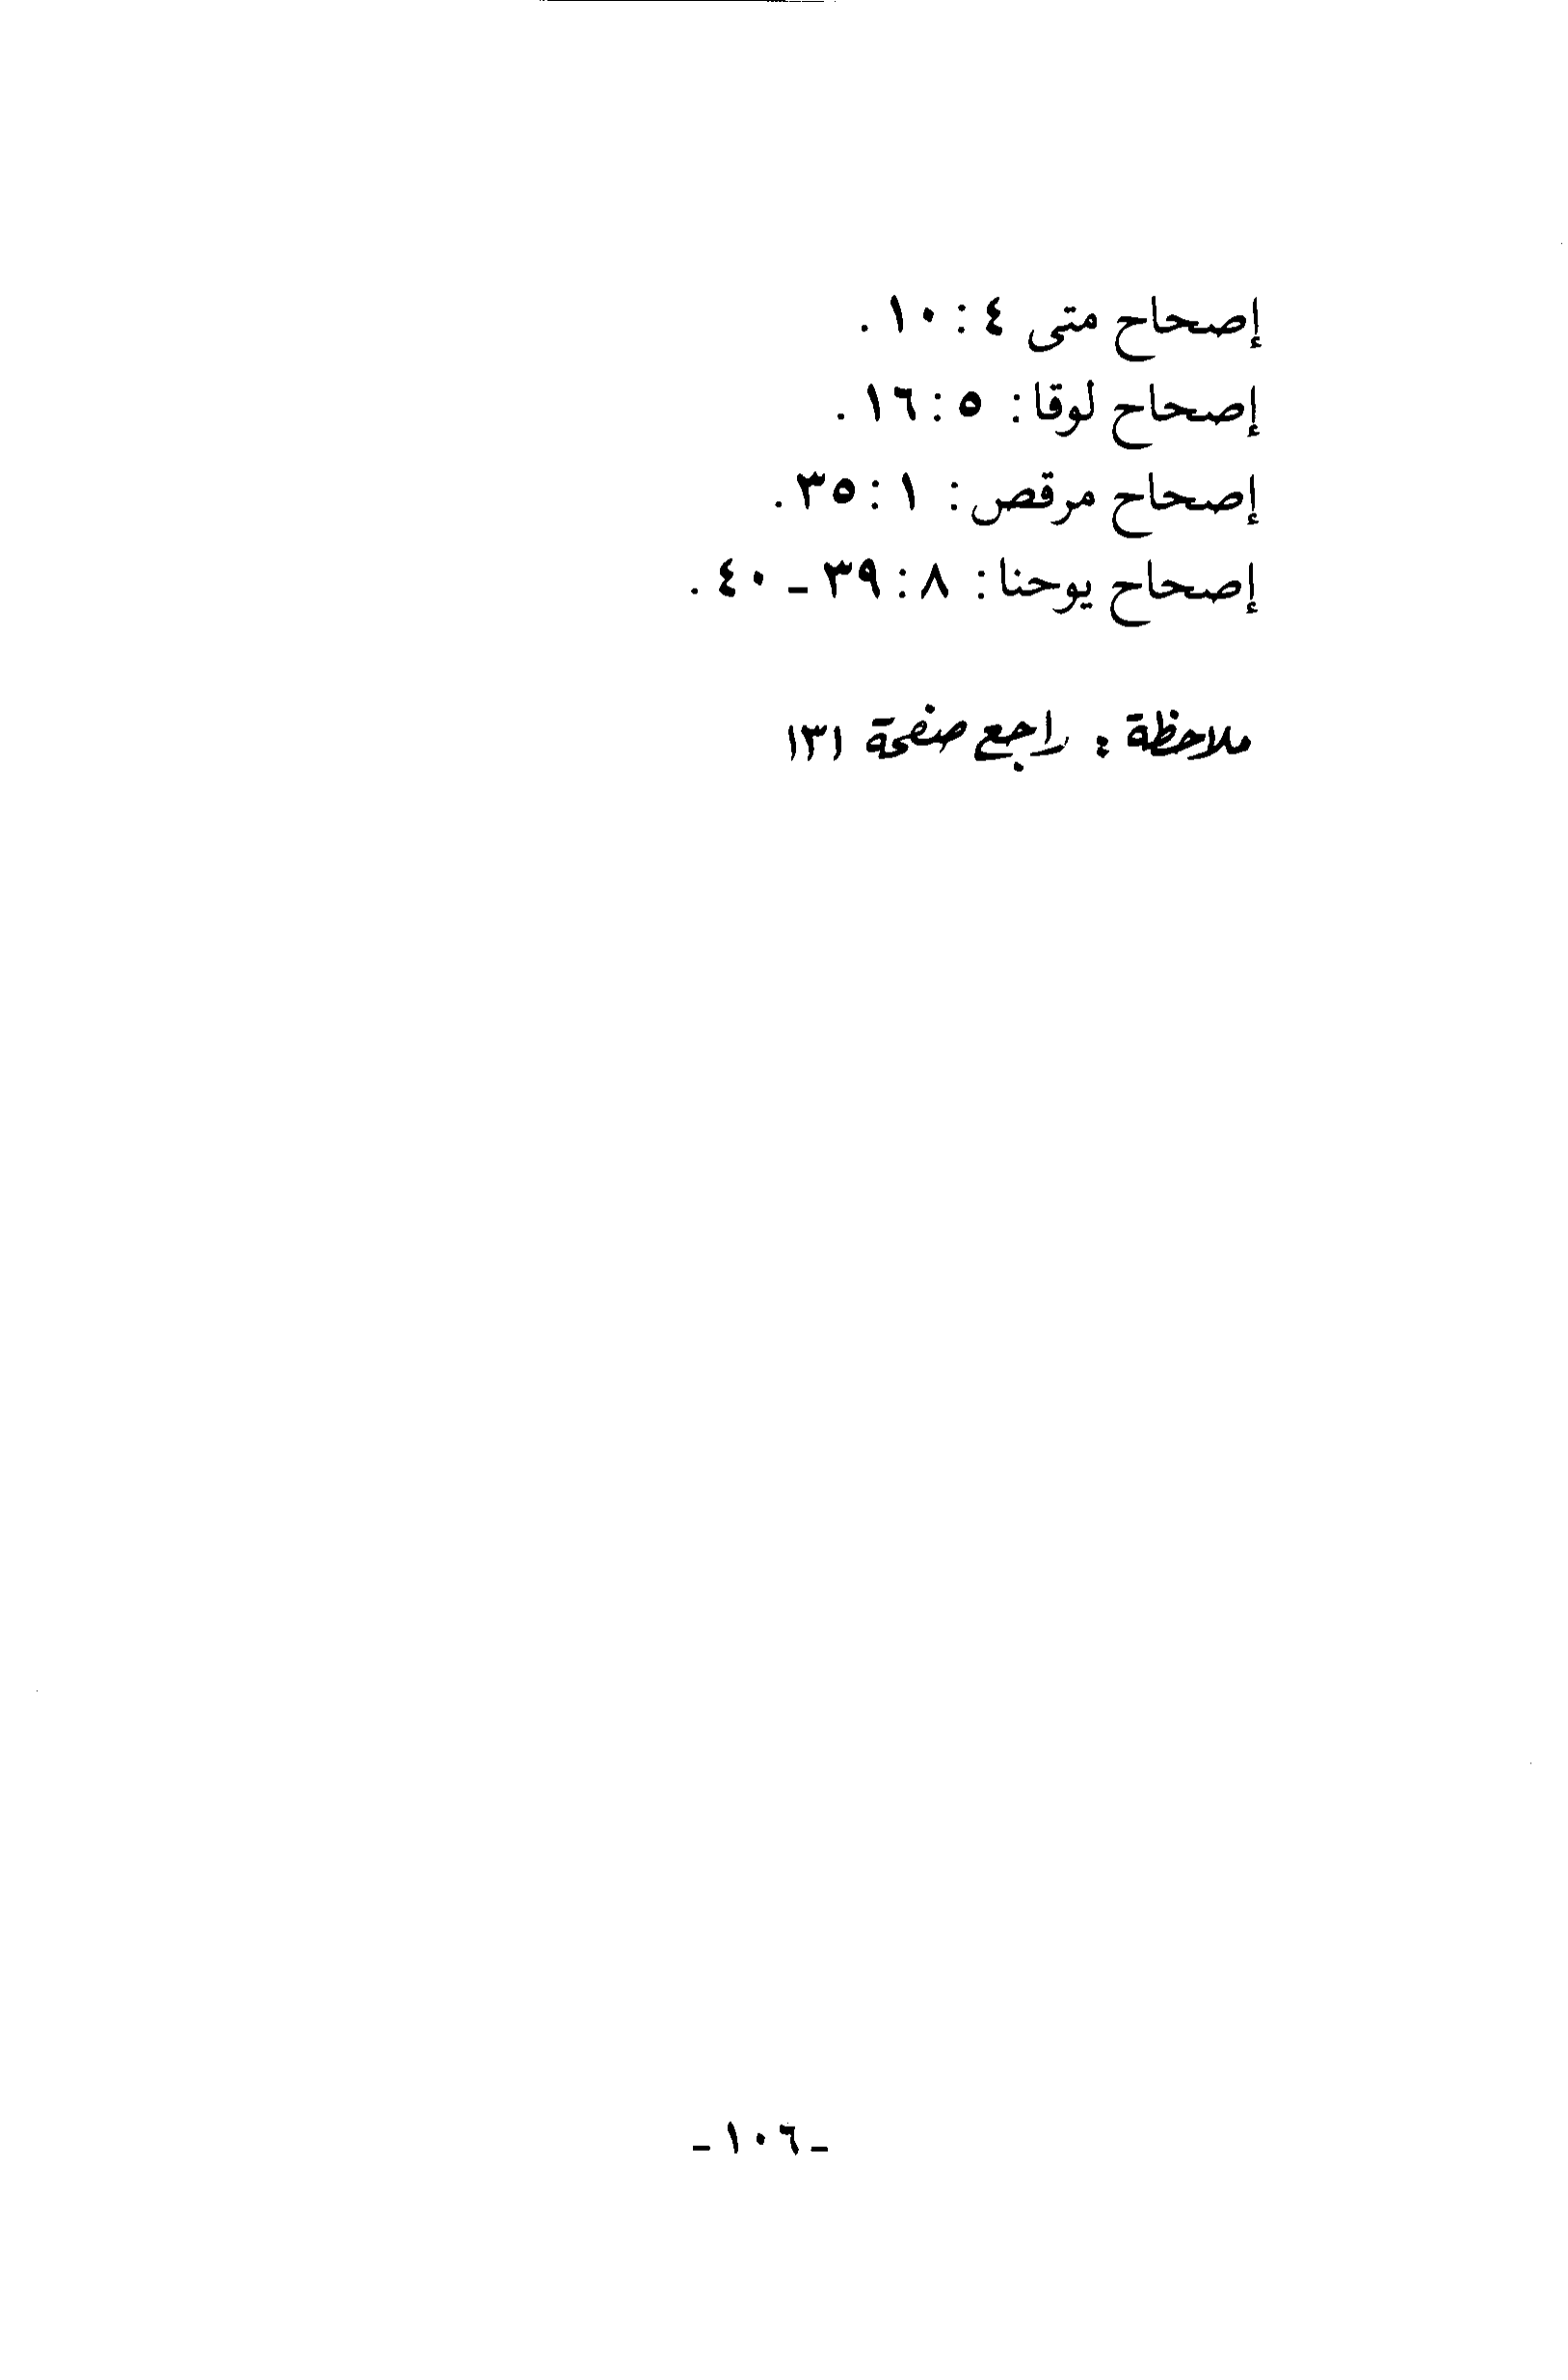 إصحاح متى ٤ : ١٠ .
إصحاح لوقا : ٥ : ١٦ .
إصحاح مرقص : ١ : ٣٥ .
إصحاح يوحنا : ٨ : ٣٩ ـ ٤٠ .
ملاحظة : راجع صفحة ١٣١
ـ ١٠٦ ـ